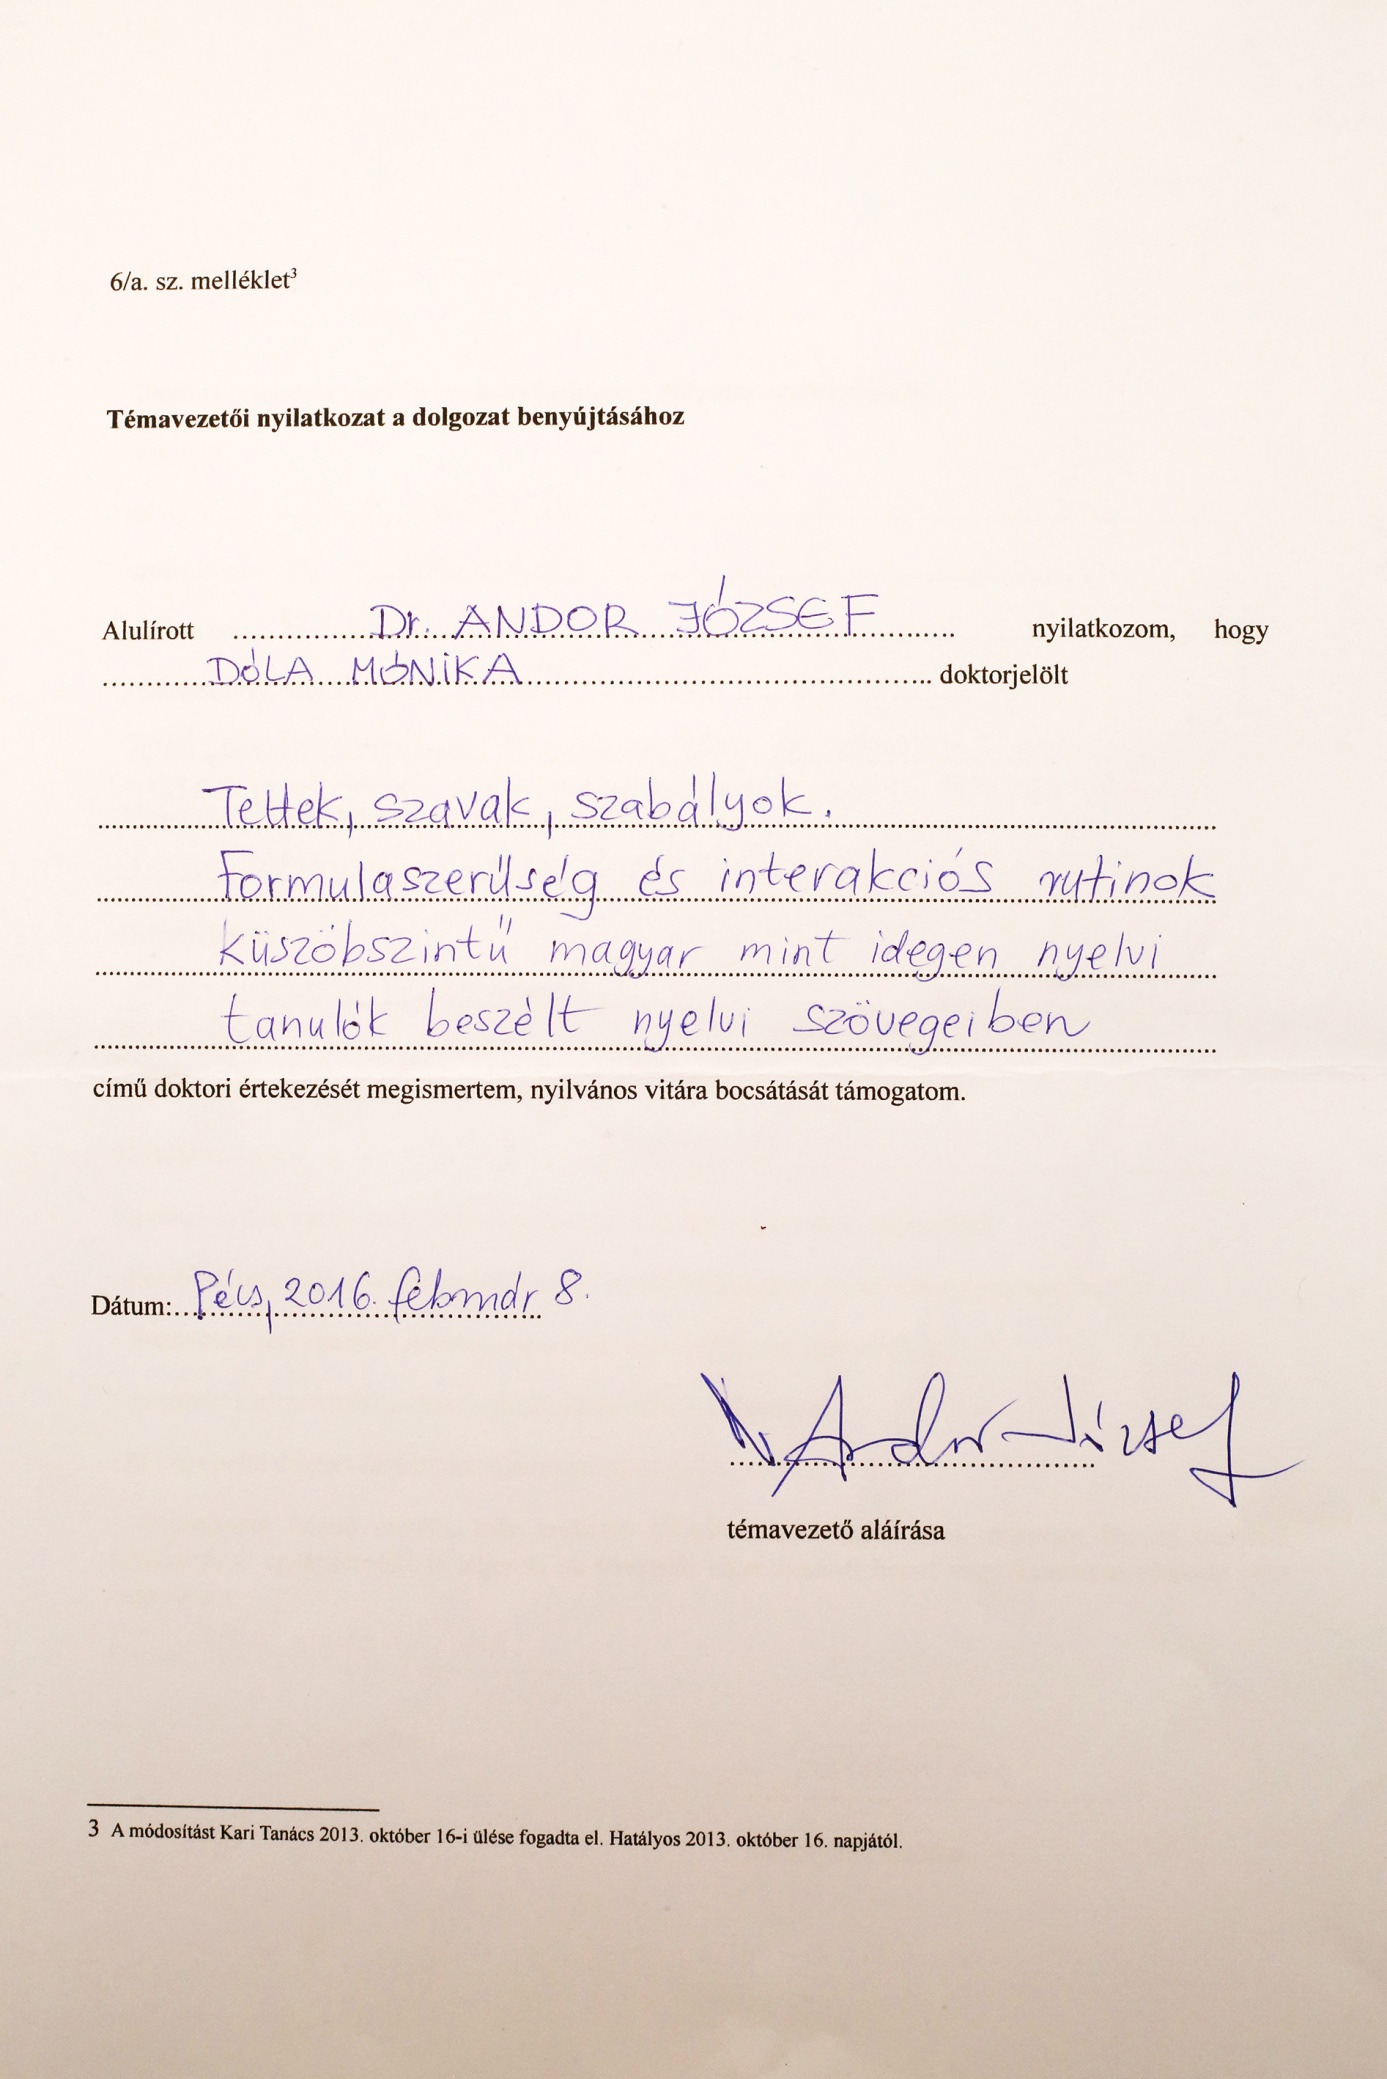 6/a. sz. melléklet³
Témavezetői nyilatkozat a dolgozat benyújtásához
Alulírott ....................Dr. ANDOR JÓZSEF............ nyilatkozom, hogy
............DÓLA MÓNIKA.................................................. doktorjelölt
Tettek, szavak, szabályok.
Formulaszerűség és interakciós rutinok
küszöbszintű magyar mint idegen nyelvi
tanulók beszélt nyelvi szövegeiben
című doktori értekezését megismertem, nyilvános vitára bocsátását támogatom.
Dátum: Pécs, 2016. február 8.
Dr. Andor József
témavezető aláírása
3 A módosítást Kari Tanács 2013. október 16-i ülése fogadta el. Hatályos 2013. október 16. napjától.